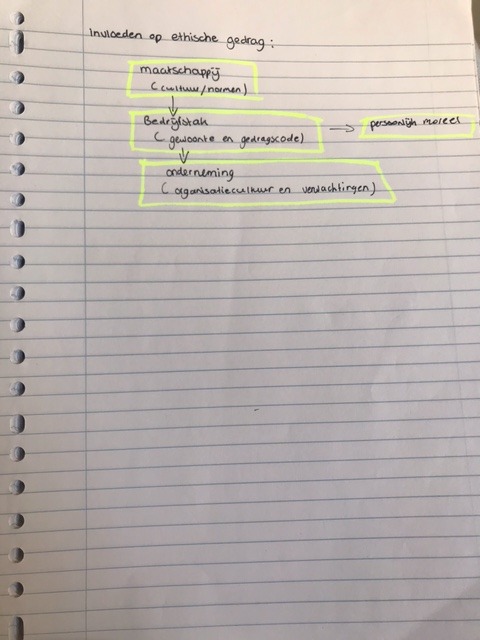 Invloeden op ethische gedrag:
maatschappij
(cultuur/normen)
Bedrijfstak
(gewoonte en gedragscode)
persoonlijk moreel
onderneming
(organisatiecultuur en verwachtingen)